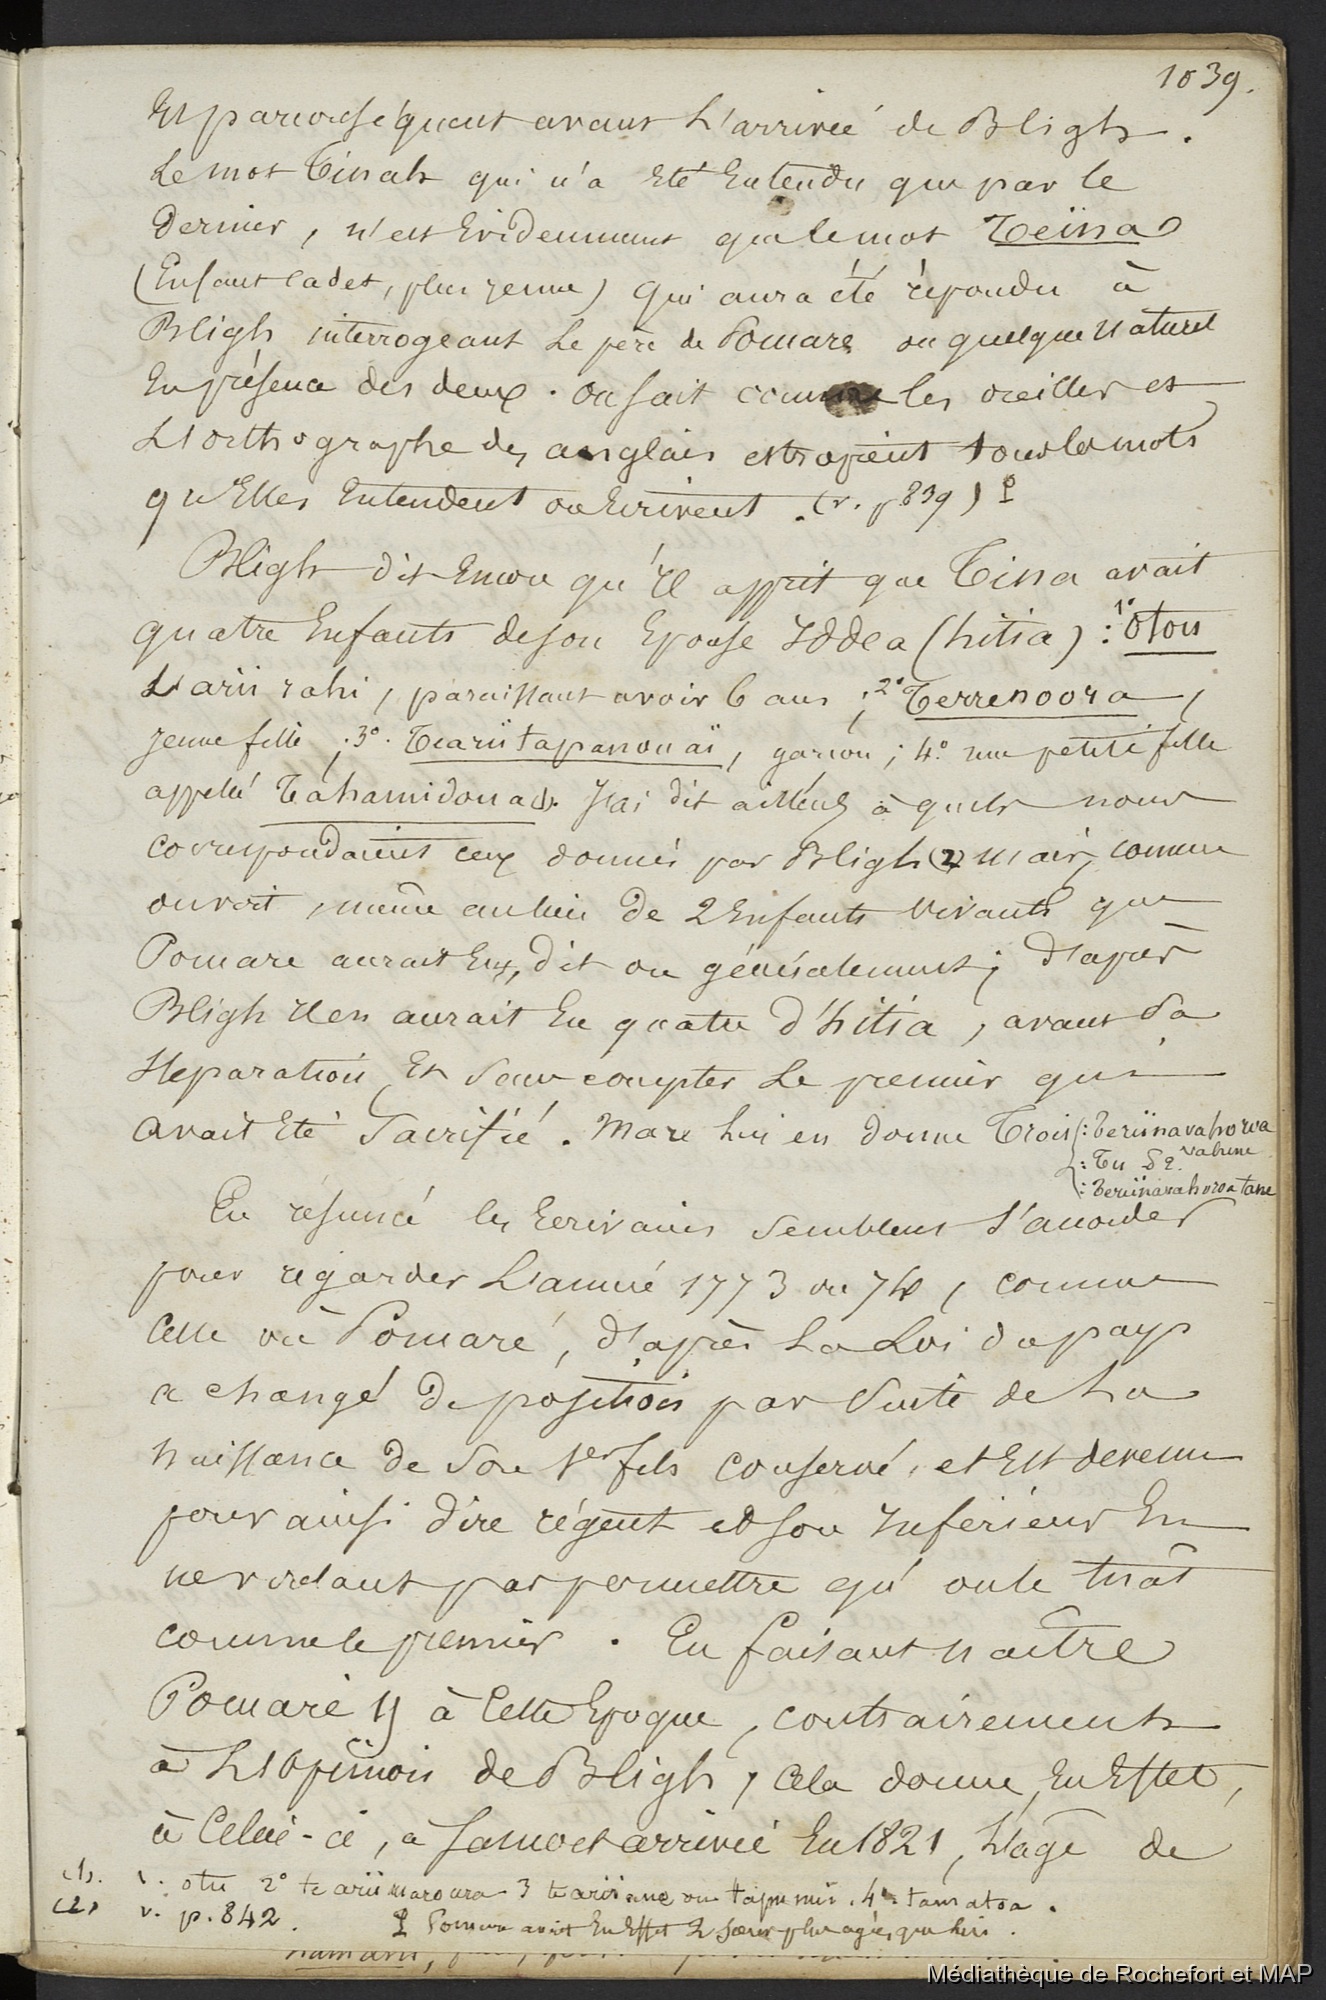 1039.
Et par conséquent avant L'arrivée de Bligh.
Le mot Tinah qui n'a Eté Entendu que par le
Dernier, n'est Evidemment que le mot Teïna
(Enfant cadet, plus jeune) qui aura été répondu à
Bligh interrogeant Le père de Pomare ou quelque Naturel
En présence des deux. On sait comme les oreilles et
L'orthographe des anglais estropient tous les mots
qu'Elles Entendent ou Ecrivent. (v. p 839)
Bligh dit Encore qu'Il apprit que Tina avait
quatre Enfants de son Epouse Iddea (hitia) : 1° Otou
L'arii rahi, paraissant avoir 6 ans ; 2° Terrenoora,
jeune fille ; 3°. Teariitapanouaï, garçon ; 4°. une petite fille
appelée Tahamidoua (1). J'ai dit ailleurs à quels noms
correspondaient ceux donnés par Bligh (2) mais, comme
on voit, même au lieu de 2 Enfants Vivants que
Pomare aurait Eus, dit on généralement ; D'après
Bligh Il en aurait Eu quatre d'hitia, avant Sa
Séparation Et Sans compter Le premier qui
avait Eté Sacrifié. Mare lui en donne Trois : Teriinavahoroa
vahine
: Tu
: Teriinavahoroa tane
En résumé les Ecrivains Semblent S'accorder
pour regarder L'année 1773 ou 74, comme
Celle où Pomaré, D'après La Loi du pays
a changé De position par Suite de La
Naissance de Son 1er fils conservé, et Est devenu
pour ainsi dire régent et son Inférieur En
ne voulant pas permettre qu'on le tuât
comme le premier. En faisant naître
Pomaré II à Cette Epoque, contrairement
à L'Opinion de Bligh, Cela donne, En Effet,
à Celui-ci, à Sa mort arrivée En 1821, L'âge de
(1). v. otu 2° te arii maroura 3 te arii ou tapu nui. 4°. tamatoa.
(2) v. p. 842.
Pomare avait En Effet 2 Sœurs plus agées que lui.
Médiathèque de Rochefort et MAP